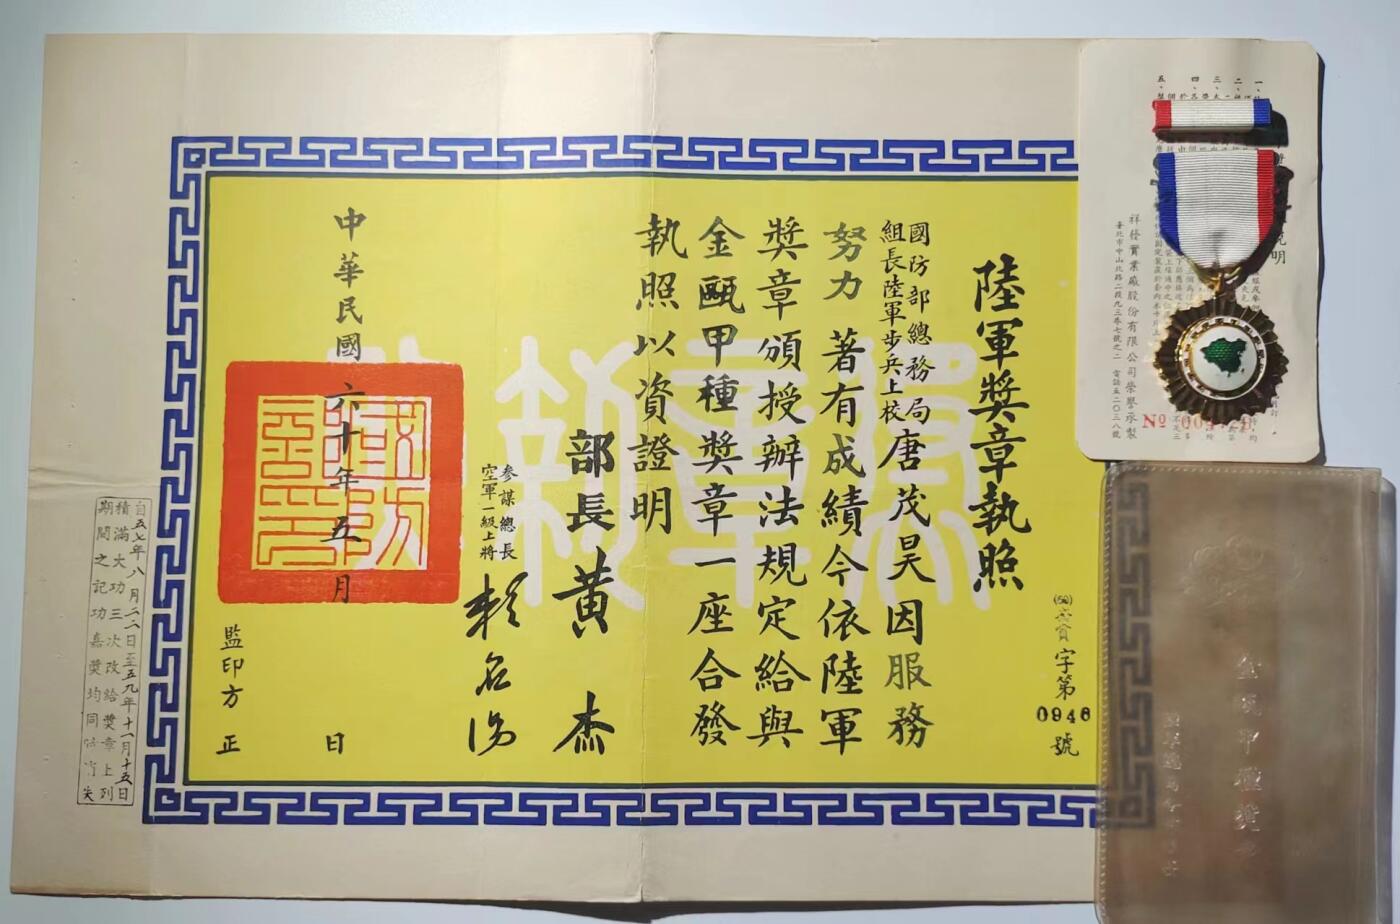 陸軍獎章執照
國防部總務局
組長陸軍步兵上校
唐茂昊因服務
努力著有成績今依陸軍
獎章頒授辦法規定給與
金甌甲種獎章一座合發
執照以資證明
部長黃杰
參謀總長
空軍一級上將
賴名湯
中華民國六十年五月 日
監印方正
字第
0946
號
自五七年八月二二日至五九年十一月十五日
積滿大功三次改給獎章上列
期間之記功嘉獎均同時消失
祥發實業廠股份有限公司榮譽承製
臺北市中山北路二段九三巷七號之二 電話五二〇三八號
金甌甲種獎章